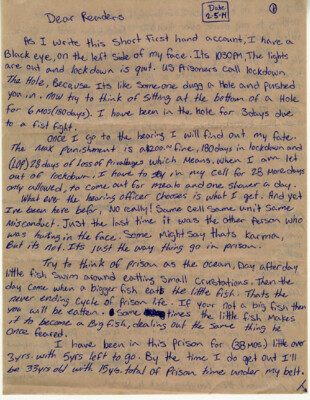 Date
2-5-14
①
Dear Readers
As I write this short first hand account, I have a
Black eye, on the left side of my face. Its 10:30PM, The lights
are out and lockdown is quit. US Prisoners call lockdown
The Hole, Because Its like Some one dugg a Hole and Pushed
you in. Now try to think of sitting at the bottom of a Hole
for 6 mos (180 days). I have been in the hole for 3 days due
to a fist fight.
Once I go to the hearing I will find out my fate.
The max Punishment is a $200.00 fine, 180 days in lockdown and
(LOP) 28 days of loss of Privaliges which means. When I am let
out of lockdown. I have to stay in my cell for 28 more days
only allowed, to come out for meals and one shower a day.
What ever the hearing officer chooses is what I get. And yet
I've been here befor, No really! Same cell Same unit Same
Misconduct. Just the last time it was the other person who
was hurting in the face. Some might say thats karma,
But its not. Its Just the way thing go in prison.
Try to think of prison as the ocean, Day after day
little fish Swim around eatting Small crustations. Then the
day come when a bigger fish eats the little fish. Thats the
never ending cycle of prison life. If your not a big fish then
you will be eatten. Some times the little fish makes
it to become a Big fish, dealing out the same thing he
once feared.
I have been in this prison for (38 mos.) little over
3 yrs. with 5 yrs left to go. By the time I do get out I'll
be 33 yrs old with 15 yrs. total of Prison time under my belt.